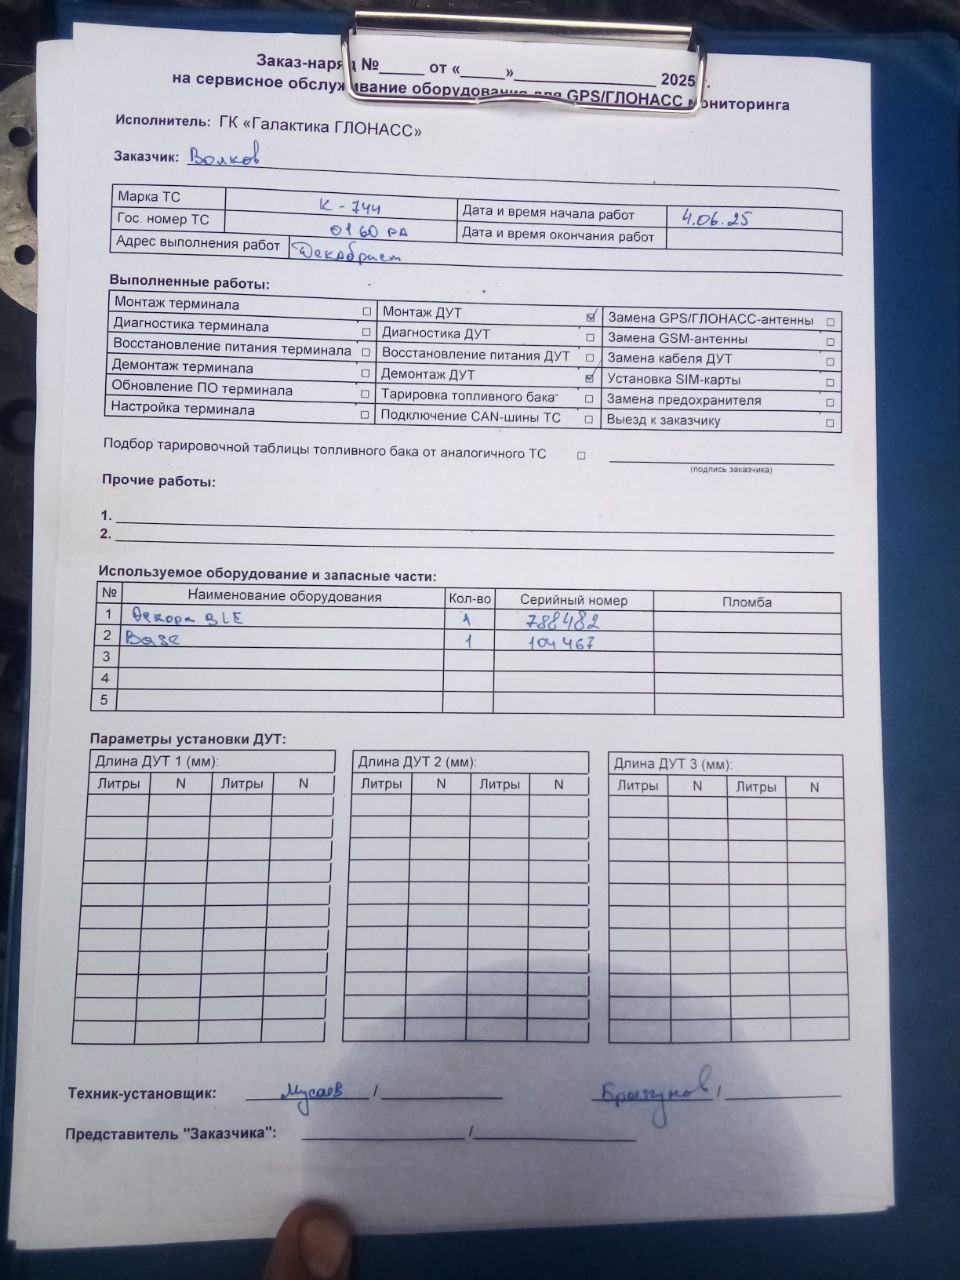 Заказ-наряд №_____ от «_____»________________ 2025 г.
на сервисное обслуживание оборудования для GPS/ГЛОНАСС мониторинга
Исполнитель: ГК «Галактика ГЛОНАСС»
Заказчик: Волков
Марка ТС К-744 Дата и время начала работ 4.06.25
Гос. номер ТС 0160 РА Дата и время окончания работ
Адрес выполнения работ Декабрист
Выполненные работы:
Монтаж терминала ☐ Монтаж ДУТ ☑ Замена GPS/ГЛОНАСС-антенны ☐
Диагностика терминала ☐ Диагностика ДУТ ☐ Замена GSM-антенны ☐
Восстановление питания терминала ☐ Восстановление питания ДУТ ☐ Замена кабеля ДУТ ☐
Демонтаж терминала ☐ Демонтаж ДУТ ☑ Установка SIM-карты ☐
Обновление ПО терминала ☐ Тарировка топливного бака ☐ Замена предохранителя ☐
Настройка терминала ☐ Подключение CAN-шины ТС ☐ Выезд к заказчику ☐
Подбор тарировочной таблицы топливного бака от аналогичного ТС ☐
(подпись заказчика)
Прочие работы:
1.
2.
Используемое оборудование и запасные части:
№ Наименование оборудования Кол-во Серийный номер Пломба
1 Эскорт BLE 1 788482
2 Base 1 104467
3
4
5
Параметры установки ДУТ:
Длина ДУТ 1 (мм): Длина ДУТ 2 (мм): Длина ДУТ 3 (мм):
Литры N Литры N Литры N Литры N Литры N Литры N
Техник-установщик: Мусаев /
Представитель "Заказчика": /